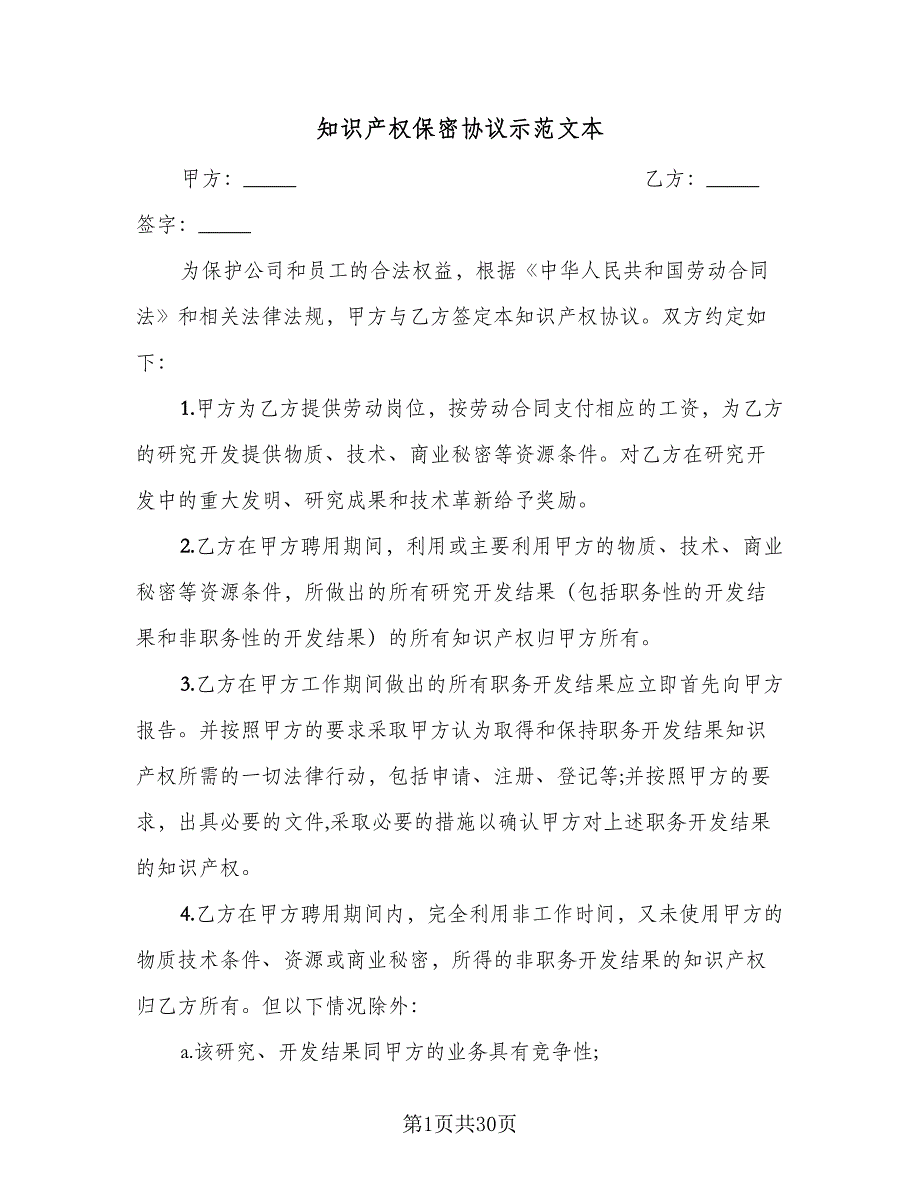 知识产权保密协议示范文本
甲方：_____ 乙方：_____
签字：_____
为保护公司和员工的合法权益，根据《中华人民共和国劳动合同
法》和相关法律法规，甲方与乙方签定本知识产权协议。双方约定如
下：
1.甲方为乙方提供劳动岗位，按劳动合同支付相应的工资，为乙方
的研究开发提供物质、技术、商业秘密等资源条件。对乙方在研究开
发中的重大发明、研究成果和技术革新给予奖励。
2.乙方在甲方聘用期间，利用或主要利用甲方的物质、技术、商业
秘密等资源条件，所做出的所有研究开发结果（包括职务性的开发结
果和非职务性的开发结果）的所有知识产权归甲方所有。
3.乙方在甲方工作期间做出的所有职务开发结果应立即首先向甲方
报告。并按照甲方的要求采取甲方认为取得和保持职务开发结果知识
产权所需的一切法律行动，包括申请、注册、登记等;并按照甲方的要
求，出具必要的文件,采取必要的措施以确认甲方对上述职务开发结果
的知识产权。
4.乙方在甲方聘用期间内，完全利用非工作时间，又未使用甲方的
物质技术条件、资源或商业秘密，所得的非职务开发结果的知识产权
归乙方所有。但以下情况除外：
a.该研究、开发结果同甲方的业务具有竞争性;
第1页共30页